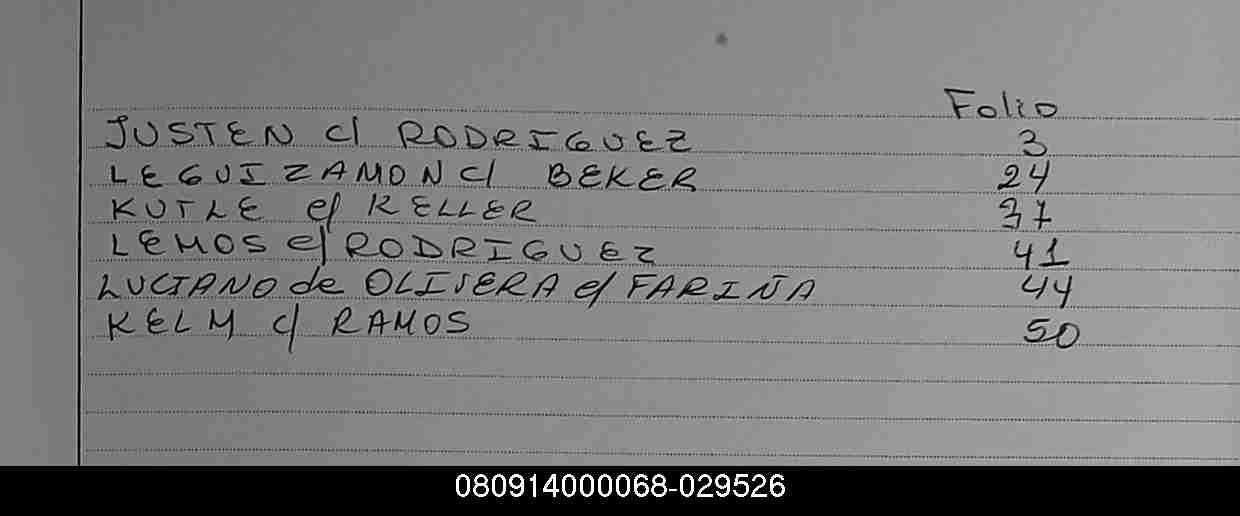 Folio
JUSTEN c/ RODRIGUEZ 3
LEGUIZAMON c/ BEKER 24
KUTLE c/ KELLER 37
LEMOS c/ RODRIGUEZ 41
LUCIANO de OLIVERA c/ FARIÑA 44
KELM c/ RAMOS 50
080914000068-029526